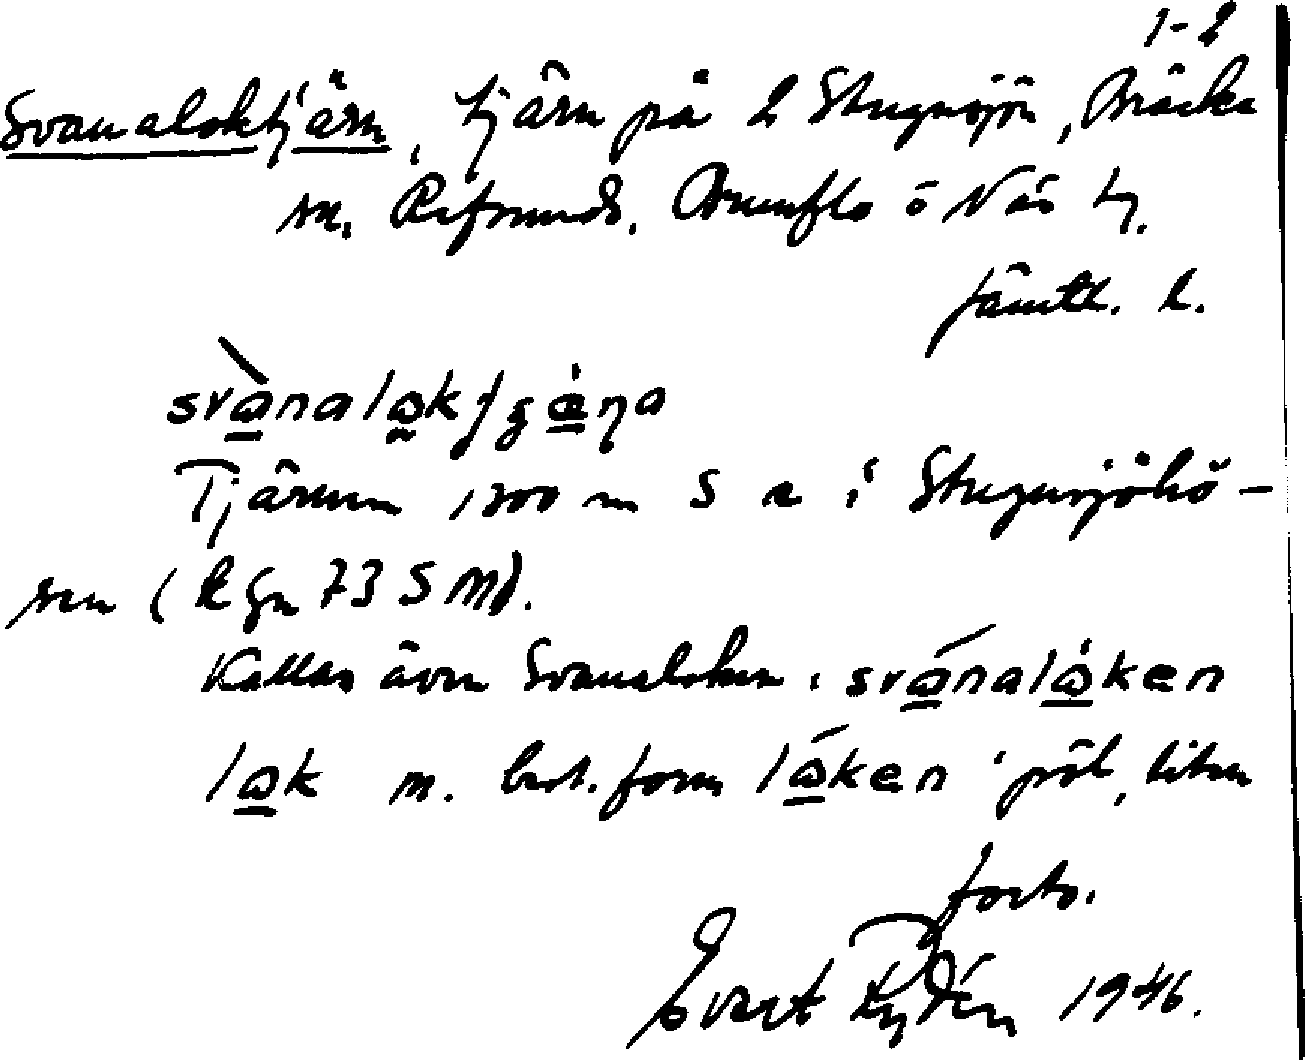 1-2
Svanaloktjärn, tjärn på 2 Stugusjön, Bräcke
sn. Refsunds, Brunflo o Näs tg.
Jämtl. l.
svànalåkʃʒæ̀ɳa
Tjärnen 1300 m S a i Stugusjöhö-
sen (Rgn 73 S M).
Kallas även Svanaloken, svånalåken
låk m. best. form låken 'pöl, liten
forts.
Evert Rydén 1946.